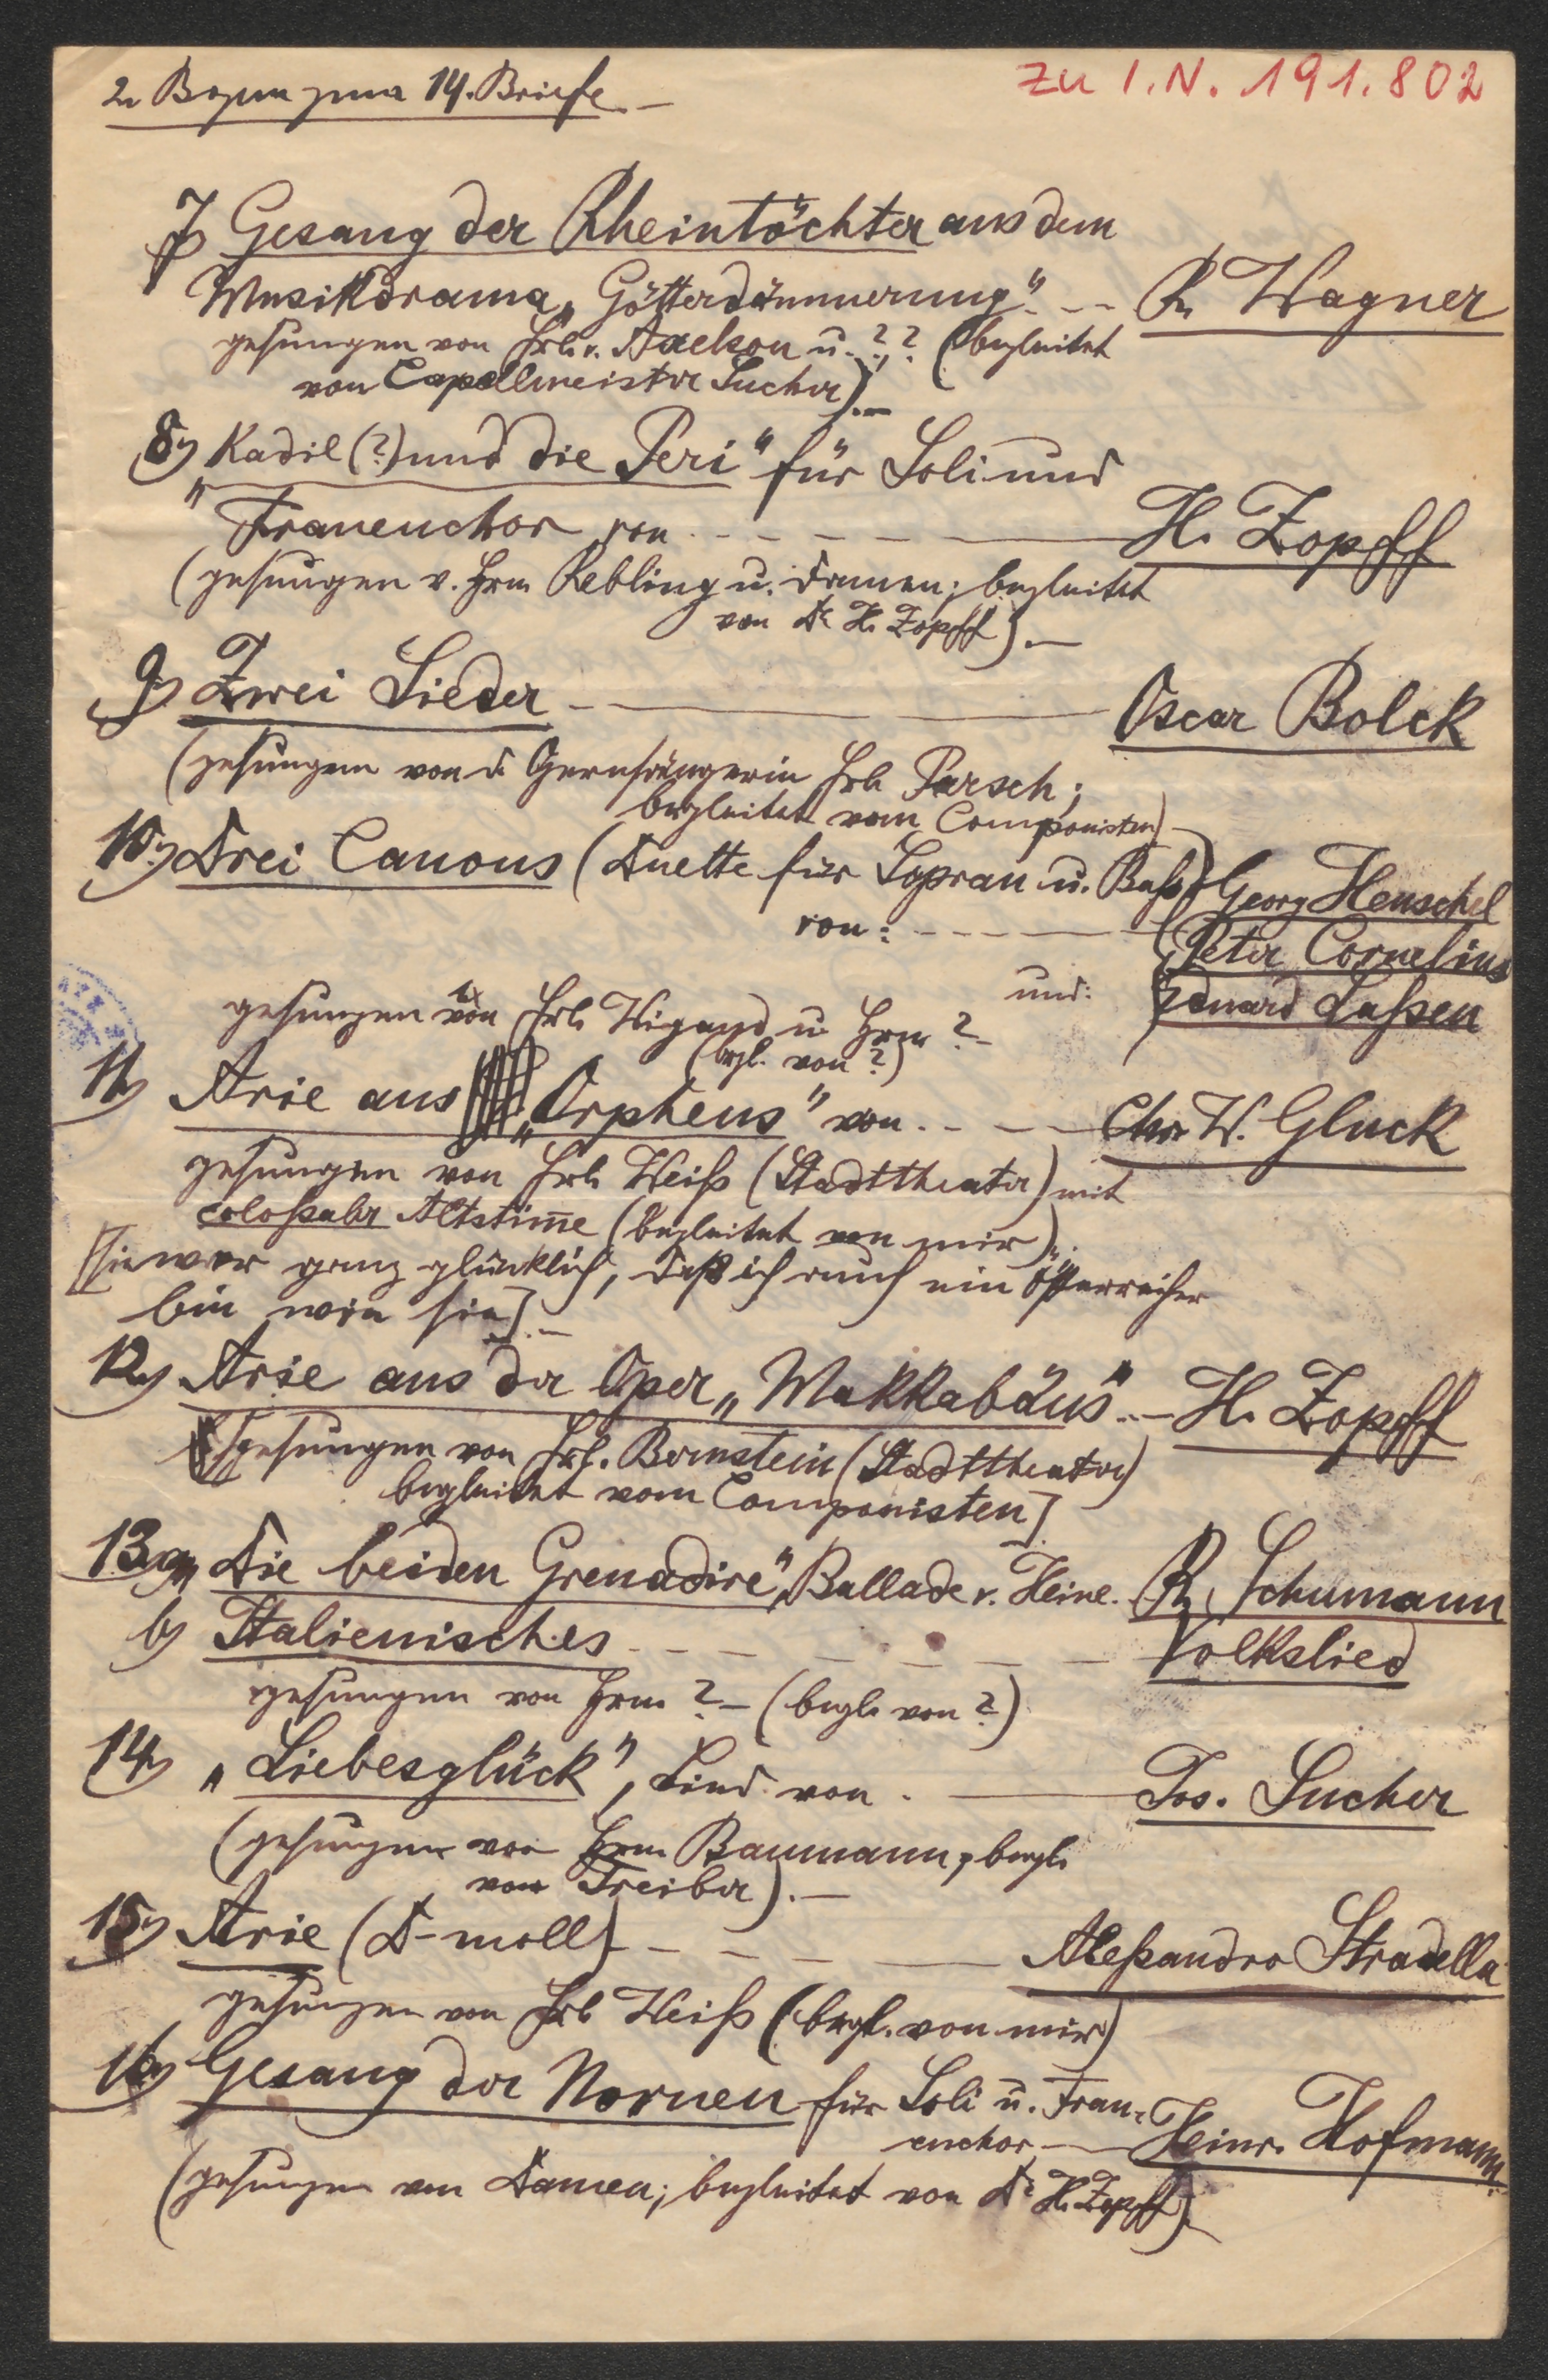 2. Bogen zum 14. Briefe. –
zu I.N. 191.802
7) Gesang der Rheintöchter aus dem
Musikdrama „Götterdämmerung“. – – R. Wagner
gesungen von Frl. v. Axelson u. ? ? (begleitet
von Capellmeister Sucher). –
8) „Kadil (?) und die Peri“ für Soli und
Frauenchor von – – – – H. Zopff
(gesungen v. Hrn. Rebling u. Damen; begleitet
von Dr. H. Zopff). –
9) Zwei Lieder – – – Oscar Bolck
(gesungen von d. Opernsängerin Frl. Parsch;
begleitet vom Componisten) –
10) Drei Canons (Duette für Sopran u. Baß) Georg Henschel
von: – – – – Peter Cornelius
und: Eduard Laßen
gesungen von Frl. Wigand u. Hrn. ? –
(begl. von ?)
11) Arie aus „Orpheus“ von – – – Chr. W. Gluck
gesungen von Frl. Weiß (Stadttheater) mit
coloßaler Altstim̅e (begleitet von mir).
[Sie war ganz glücklich, daß ich auch ein Österreicher
bin wie sie]. –
12) Arie aus der Oper „Makkabäus“. – H. Zopff
[gesungen von Frl. Bernstein (Stadttheater)
begleitet vom Componisten]
13) a) Die beiden Grenadire“, Ballade v. Heine. R. Schumann
b) Italienisches – – – – – – Volkslied
gesungen von Hrn. ? – (begl. von ?)
14) „Liebesglück“, Lied von . – Jos. Sucher
(gesungen von Hrn. Baumann, begl.
von Treiber). –
15) Arie (D-moll) – – – – Aleßandro Stradella
gesungen von Frl. Weiß (begl. von mir)
16) Gesang der Nornen für Soli u. Frau-
enchor – Heinr. Hofmann.
(gesungen von Damen; begleitet von Dr. H. Zopff). –